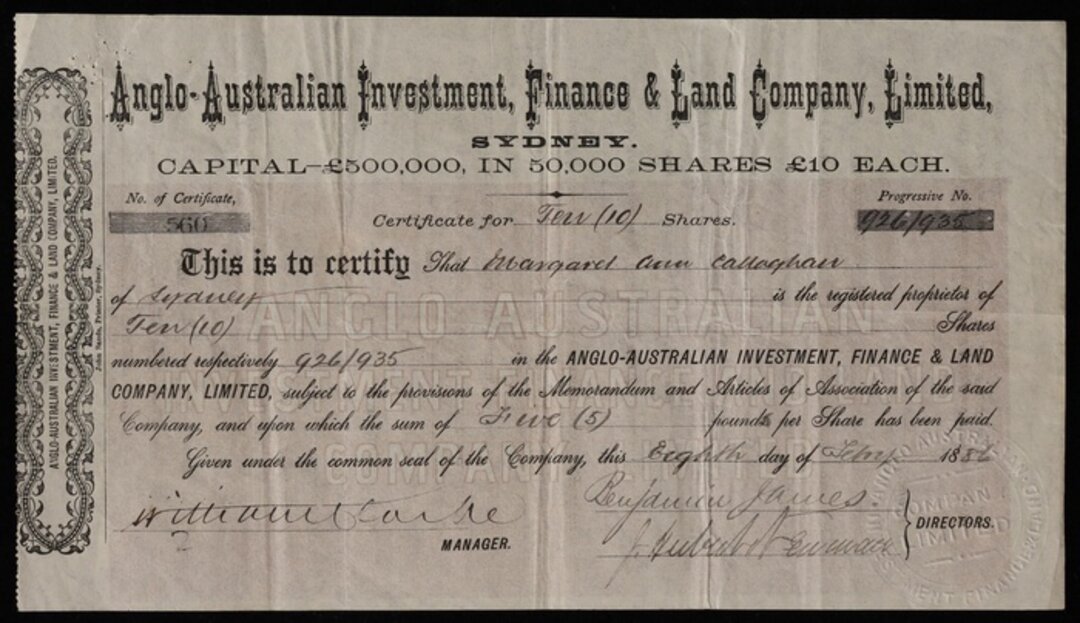 Anglo-Australian Investment, Finance & Land Company, Limited,
SYDNEY.
CAPITAL—£500,000, IN 50,000 SHARES £10 EACH.
No. of Certificate,
560
Certificate for Ten (10) Shares.
Progressive No.
926/935
This is to certify That Margaret Ann Callaghan
of Sydney is the registered proprietor of
Ten (10) Shares
numbered respectively 926/935 in the ANGLO-AUSTRALIAN INVESTMENT, FINANCE & LAND
COMPANY, LIMITED, subject to the provisions of the Memorandum and Articles of Association of the said
Company, and upon which the sum of Five (5) pounds per Share has been paid.
Given under the common seal of the Company, this Eighth day of Feby 1886
William Clarke
MANAGER.
Benjamin James.
J. Hubert Newman
DIRECTORS.
ANGLO-AUSTRALIAN INVESTMENT, FINANCE & LAND COMPANY, LIMITED.
John Sands, Printer, Sydney.
ANGLO AUSTRALIAN
COMPANY LIMITED